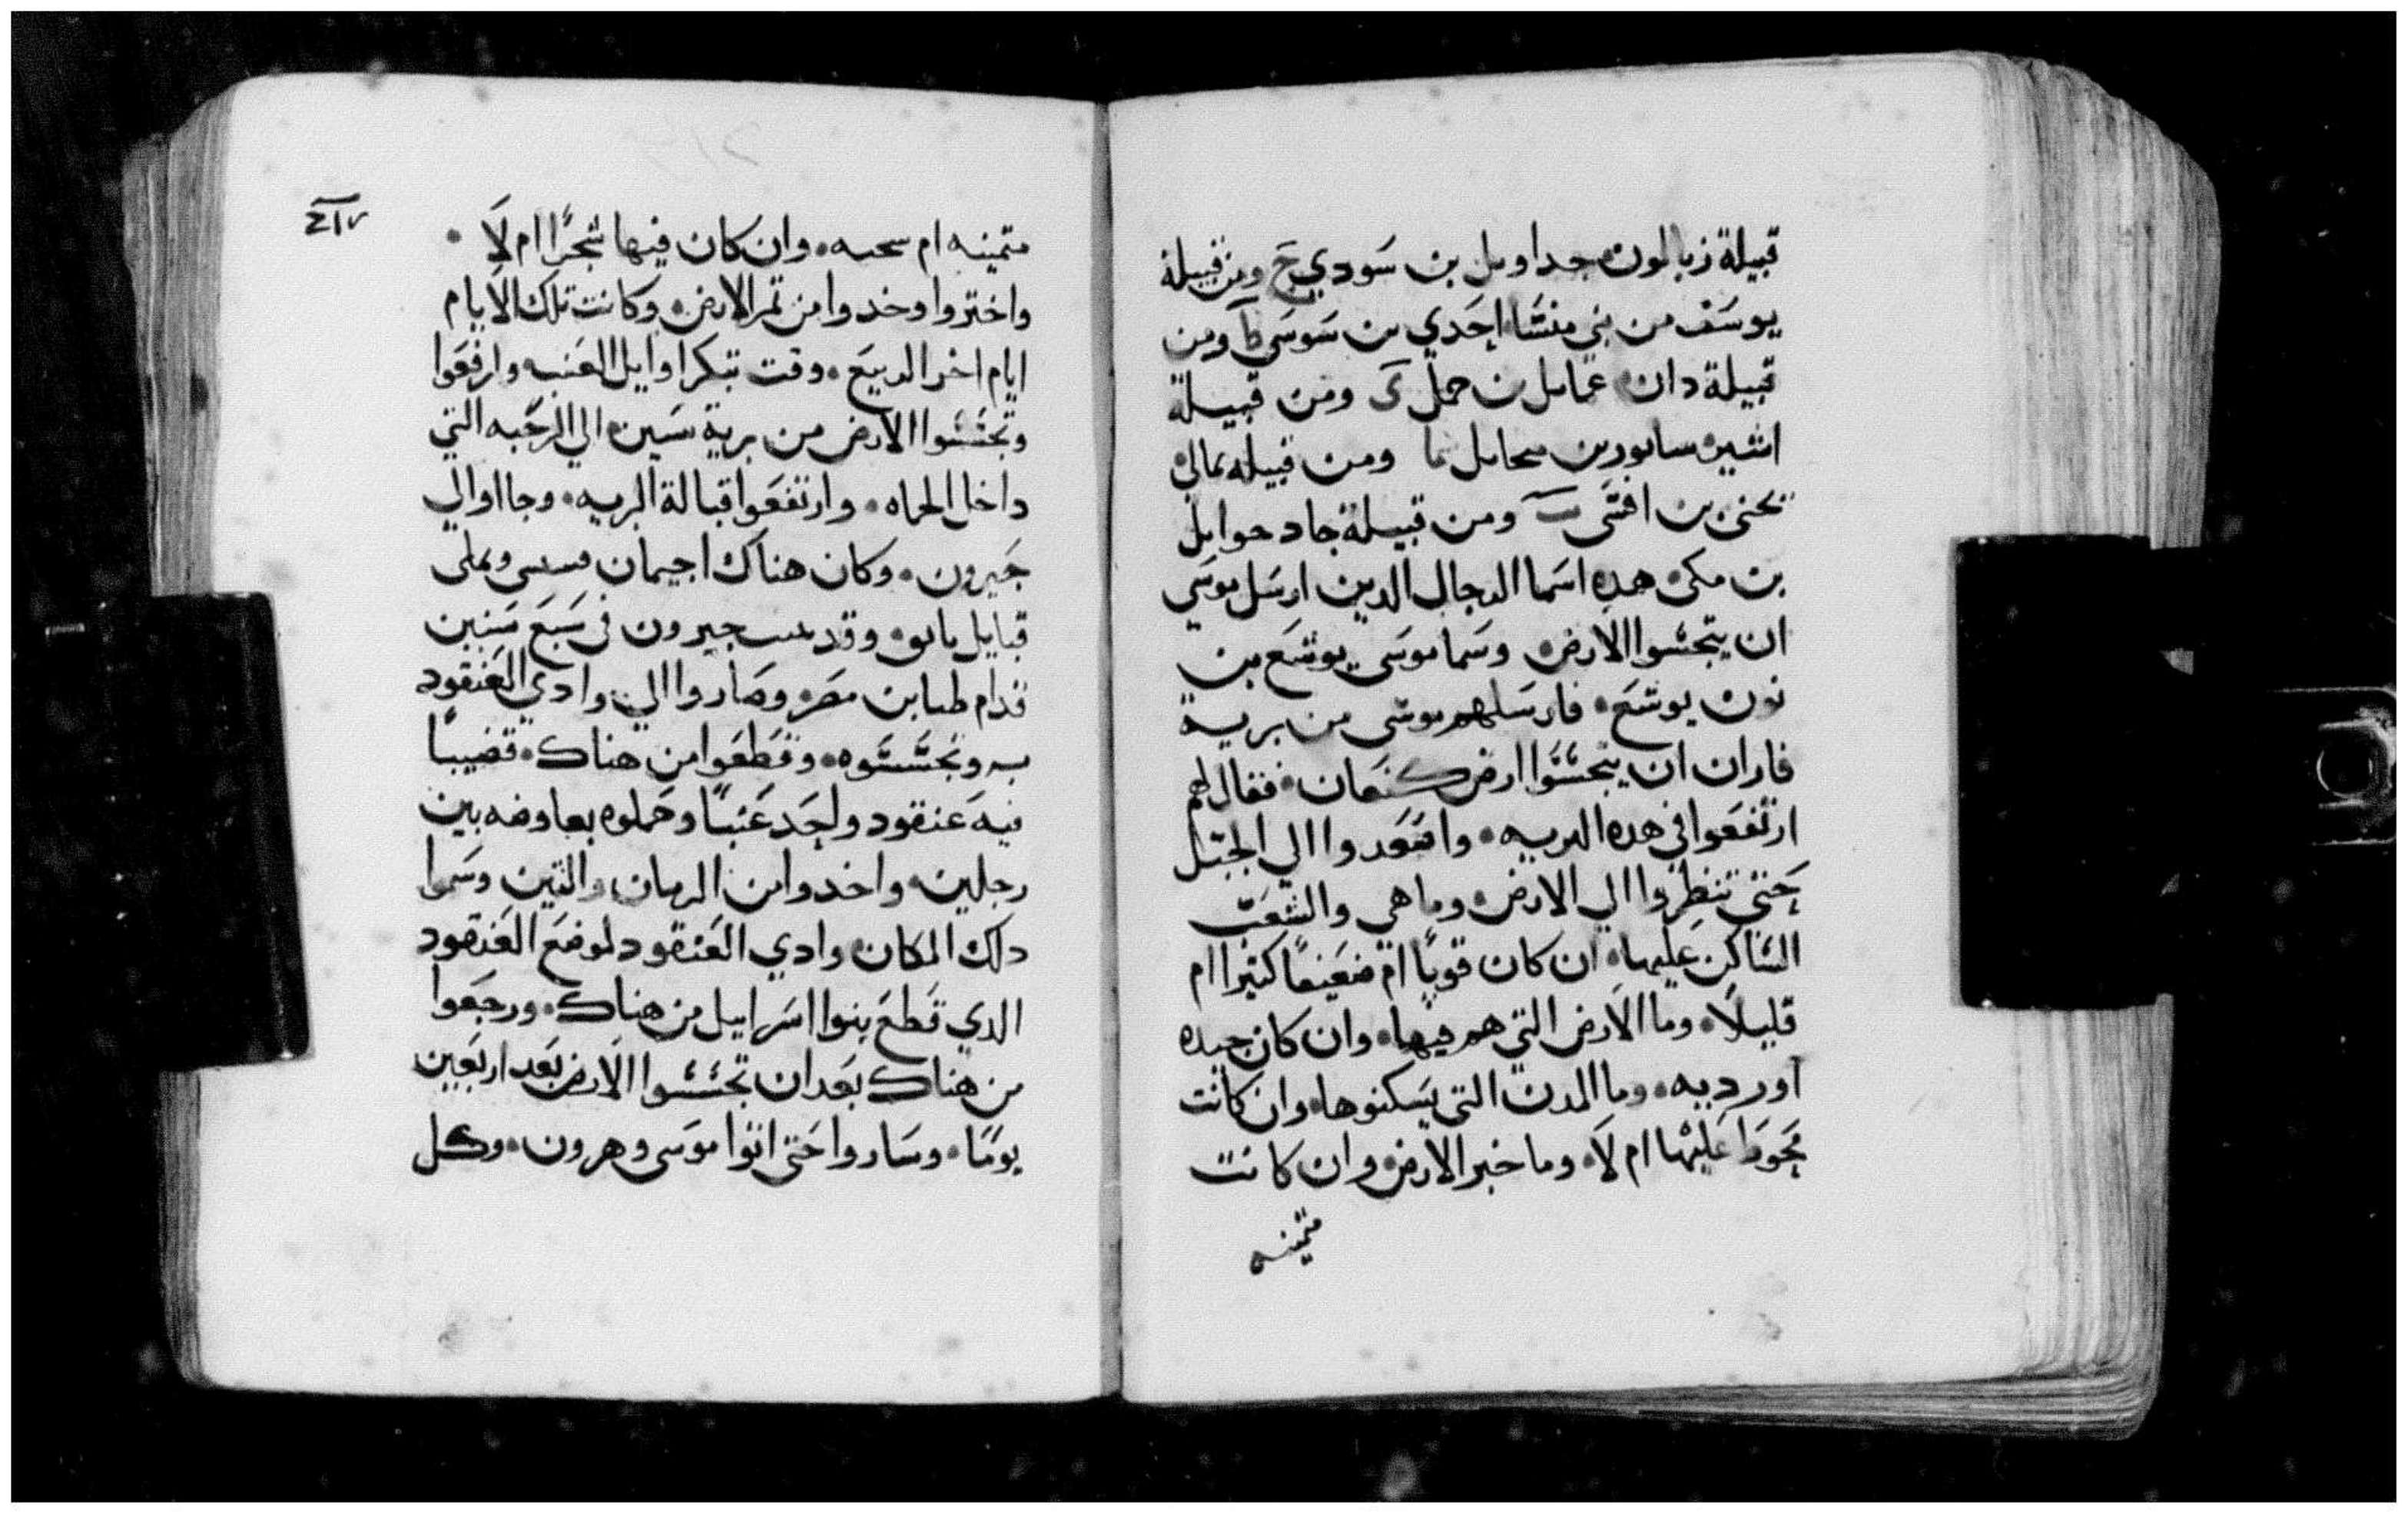 قبيلة زبالون جداويل بن سودي ح ومن قبيلة
يوسف من بني منشا احدي بن سوسي ط ومن
قبيلة دان عمايل بن حملي ي ومن قبيلة
اشير سابور بن محايل يا ومن قبيله نمالي
نحني بن افشي يب ومن قبيلة جاد حوايل
بن مكي هده اسما الرجال الدين ارسل موسي
ان يتجسوا الارض وسما موسى يوشع بن
نون يوشع فارسلهم موسى من برية
فاران ان يتجسسوا ارض كنعان فقال لهم
ارتفعوا في هده البريه واصعدوا الي الجبل
حتى تنظروا الي الارض وما هي والشعب
الساكن عليها ان كان قويًا ام ضعيفًا كتيرا ام
قليلًا وما الارض التي هم فيها وان كان جيده
او رديه وما المدن التي يسكنوها وان كانت
محوط عليها ام لا وما خبر الارض وان كانت
متمينه
٤١٧
متمينه ام سحىه وان كان فيها شجرًا ام لا
واختروا وخدوا من تمر الارض وكانت تلك الايام
ايام اخر الربيع وقت تبكر اوايل العنب وارفعوا
وتجسسوا الارض من برية سين الي الرحبه التي
داخل الحماه وارتفعوا قبالة البريه وجااوالي
جيرون وكان هناك اجيمان وسسى وىملى
قبايل ياىو وقد ىىىت جيرون في سبع سنين
قدام طىا بن مصر وصاروا الي وادي العنقود
به وتجسسوه وقطعوا من هناك قضيبًا
فيه عنقود واحد عنبًا وحملوه بعاوضه بين
رجلين واخدوا من الرمان والتين وسموا
دلك المكان وادي العنقود لموضع العنقود
الدي قطع بنوا اسراييل من هناك ورجعوا
من هناك بعد ان تجسسوا الارض بعد اربعين
يومًا وساروا حتى اتوا موسى وهرون وكل